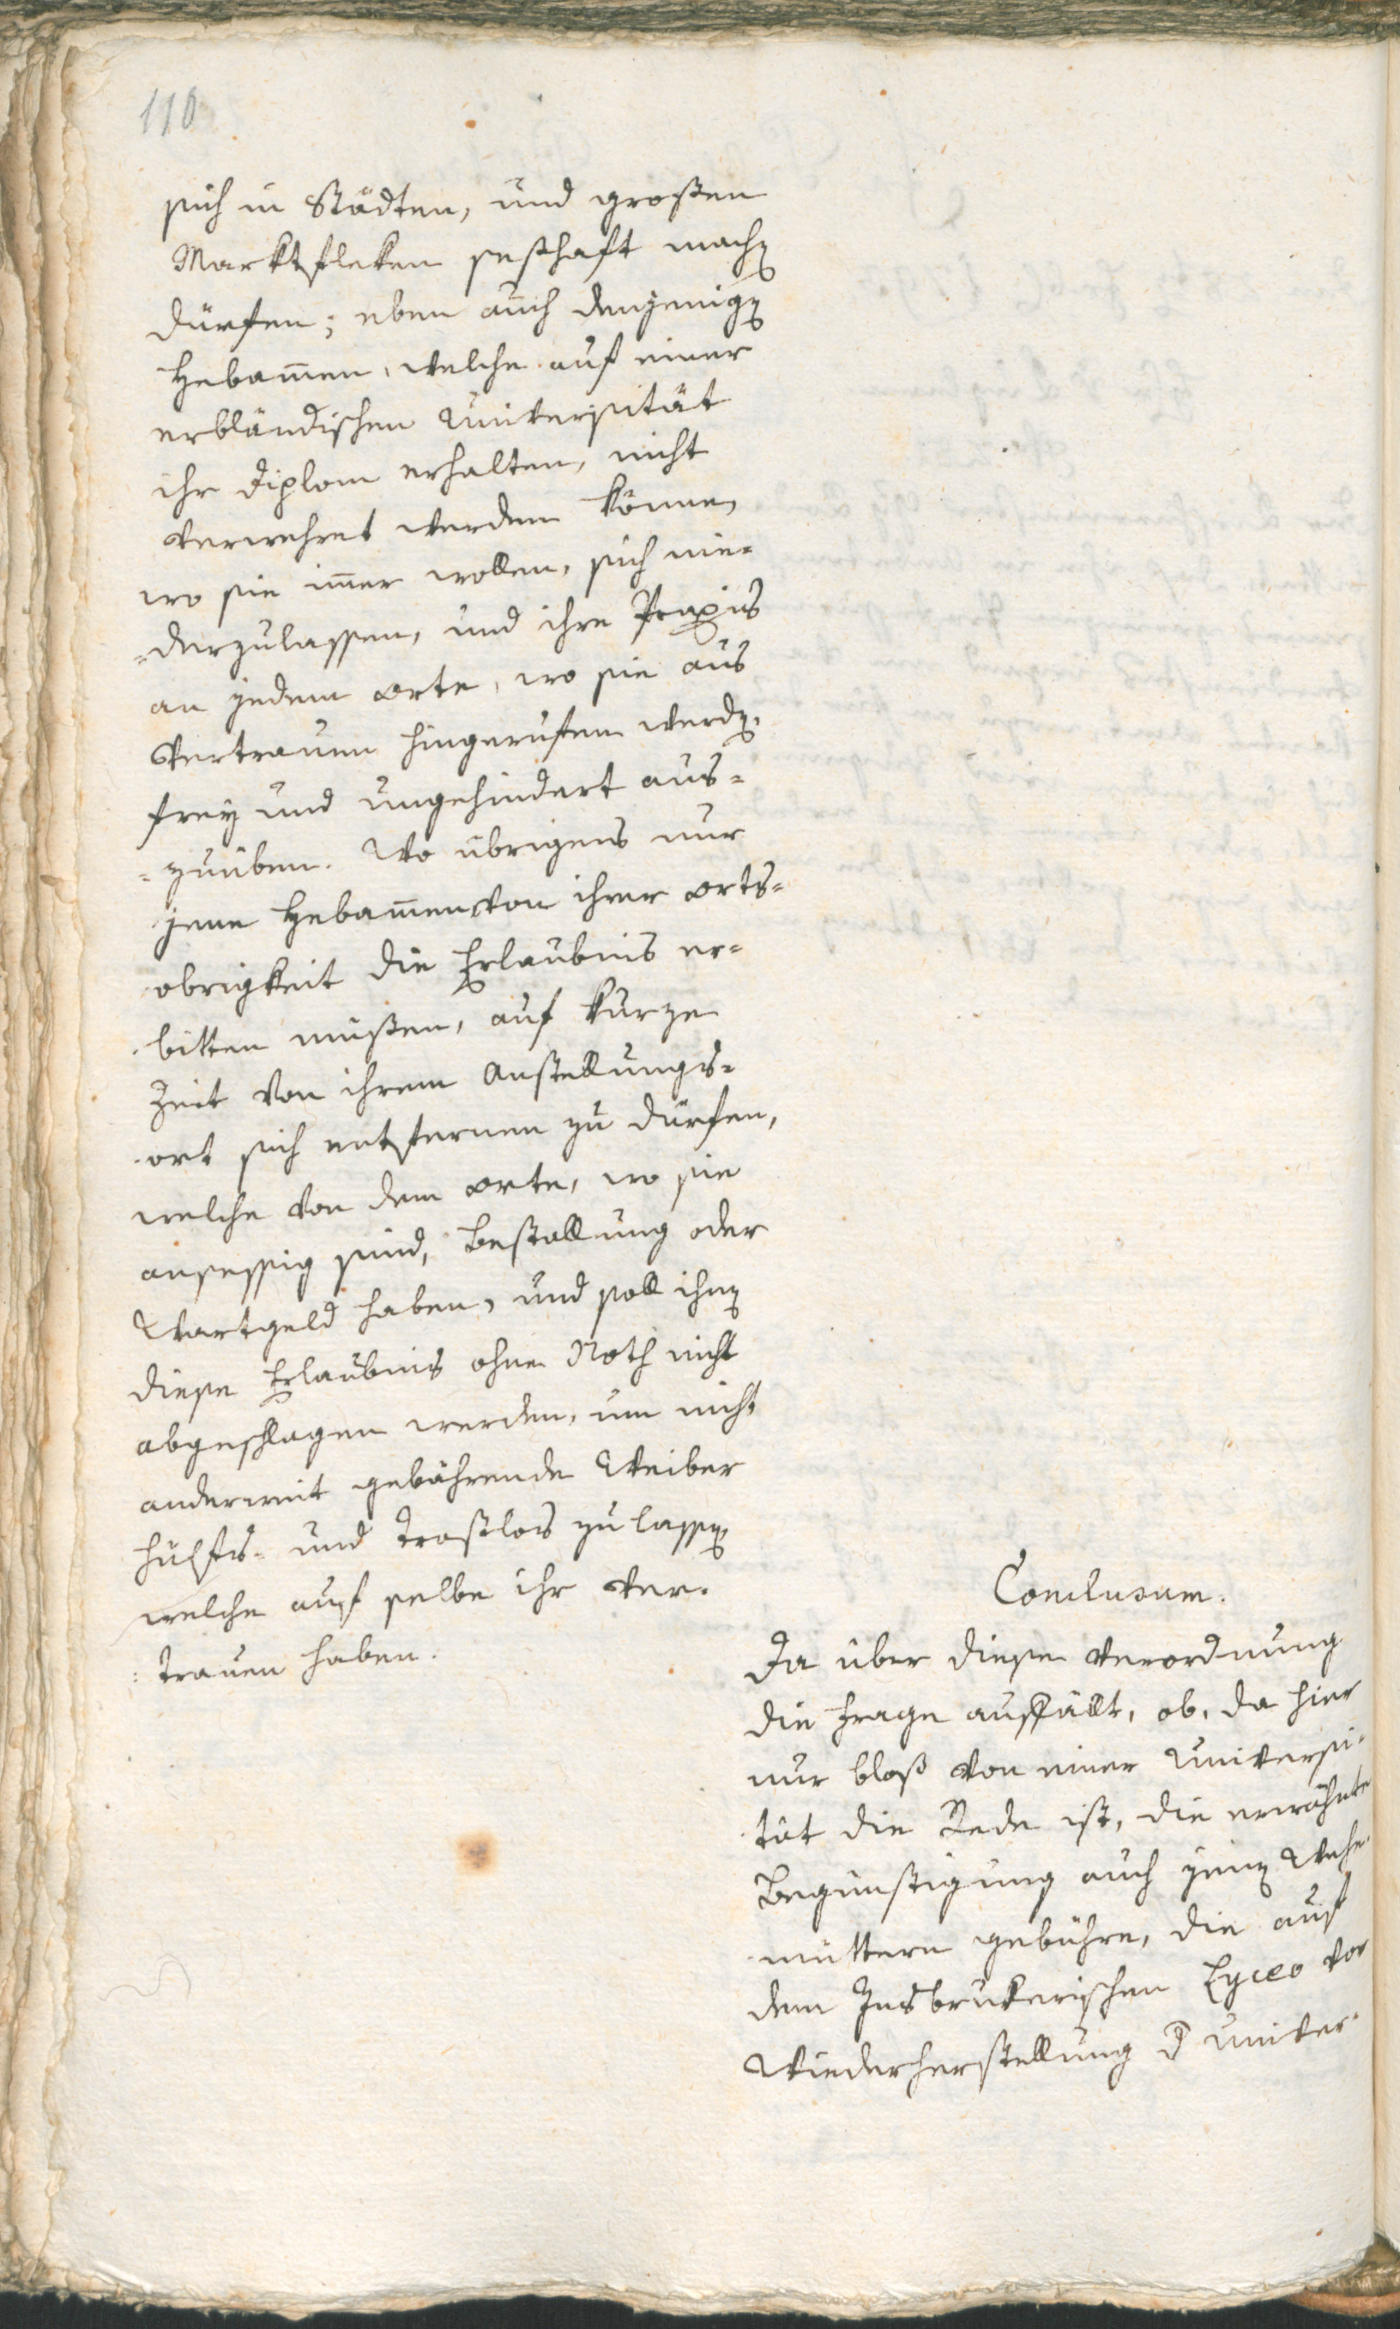 110
sich in Städten, und großen
Marktfleken seßhaft machen
dürfen; eben auch denjenigen
Hebam̅en, welche auf einer
erbländischen Universität
ihr Diplom erhalten, nicht
verwehret werden könne,
wo sie im̅er wollen, sich nie-
-derzulassen, und ihre Praxis
an jedem Orte, wo sie aus
Vertrauen hingerufen werden,
frey und ungehindert aus-
-zuüben. Wo übrigens nur
jene Hebam̅en von ihrer Orts-
obrigkeit die Erlaubnis er-
bitten müßen, auf kurze
Zeit von ihrem Anstellungs-
ort sich entfernen zu dürfen,
welche von dem Orte, wo sie
ansessig sind, Bestallung oder
Wartgeld haben, und soll ihnen
diese Erlaubnis ohne Noth nicht
abgeschlagen werden, um nicht
anderweit gebährende Weiber
hülfs- und trostlos zu lassen
welche auf selbe ihr Ver-
trauen haben.
Conclusum.
Da über diese Verordnung
die Frage auffällt, ob, da hier
nur bloß von einer Universi-
tät die Rede ist, die erwähnte
Begünstigung auch jenen Wehe-
müttern gebühre, die auf
dem Insbrukerischen Lyceo vor
Wiederherstellung der Univer-